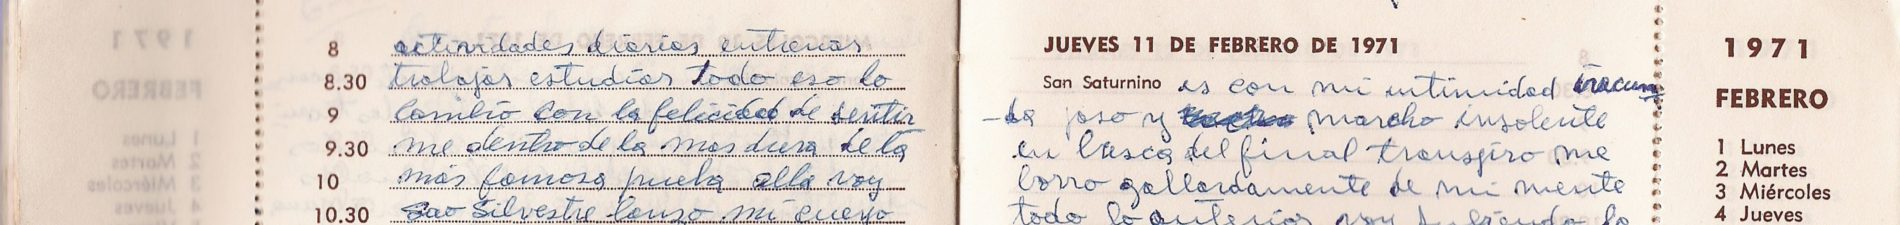 8 actividades diarias entrenar
8.30 trabajar estudiar todo eso lo
9 cambio con la felicidad de sentir
9.30 me dentro de la mas dura de la
10 más famosa prueba alla voy
10.30 Sao Silvestre lanzo mi cuerpo
JUEVES 11 DE FEBRERO DE 1971
San Saturnino es con mi intimidad iracun
-da paso y marcho insolente
en busca del final transpiro me
borro gallardamente de mi mente
todo lo anterior voy sufriendo lo
1971
FEBRERO
1 Lunes
2 Martes
3 Miércoles
4 Jueves